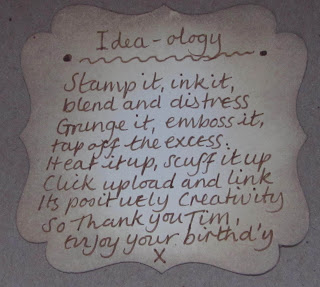 Idea-ology
Stamp it, ink it,
blend and distress
Grunge it, emboss it,
tap off the excess.
Heat it up, scuff it up
Click upload and link
Its positively Creativity
So Thank you Tim,
enjoy your birthd'y
X